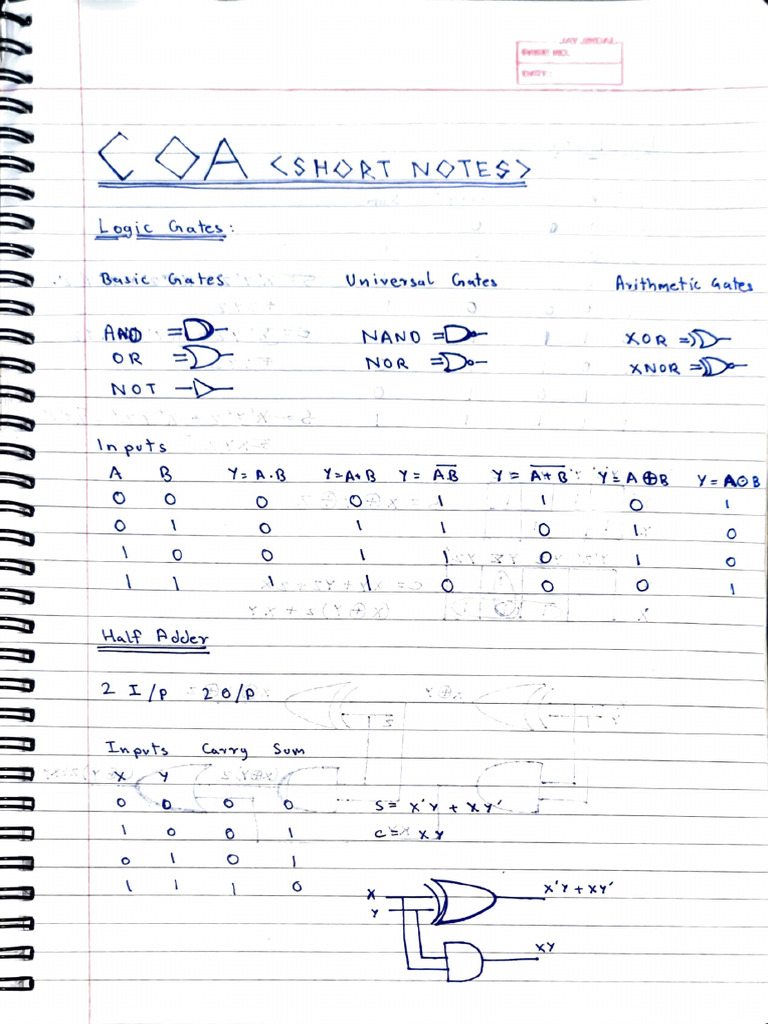 JAY JINDAL
PAGE NO.
DATE:
COA <SHORT NOTES>
Logic Gates:
Basic Gates Universal Gates Arithmetic Gates
AND NAND XOR
OR NOR XNOR
NOT
Inputs
A B Y=A.B Y=A+B Y= A̅B̅ Y= A̅+̅B̅ Y=A⊕B Y=A⊙B
0 0 0 0 1 1 0 1
0 1 0 1 1 0 1 0
1 0 0 1 1 0 1 0
1 1 1 1 0 0 0 1
Half Adder
2 I/P 2 O/P
Inputs Carry Sum
X Y
0 0 0 0 S= X'Y + XY'
1 0 0 1 C= XY
0 1 0 1
1 1 1 0
X X'Y + XY'
Y
XY